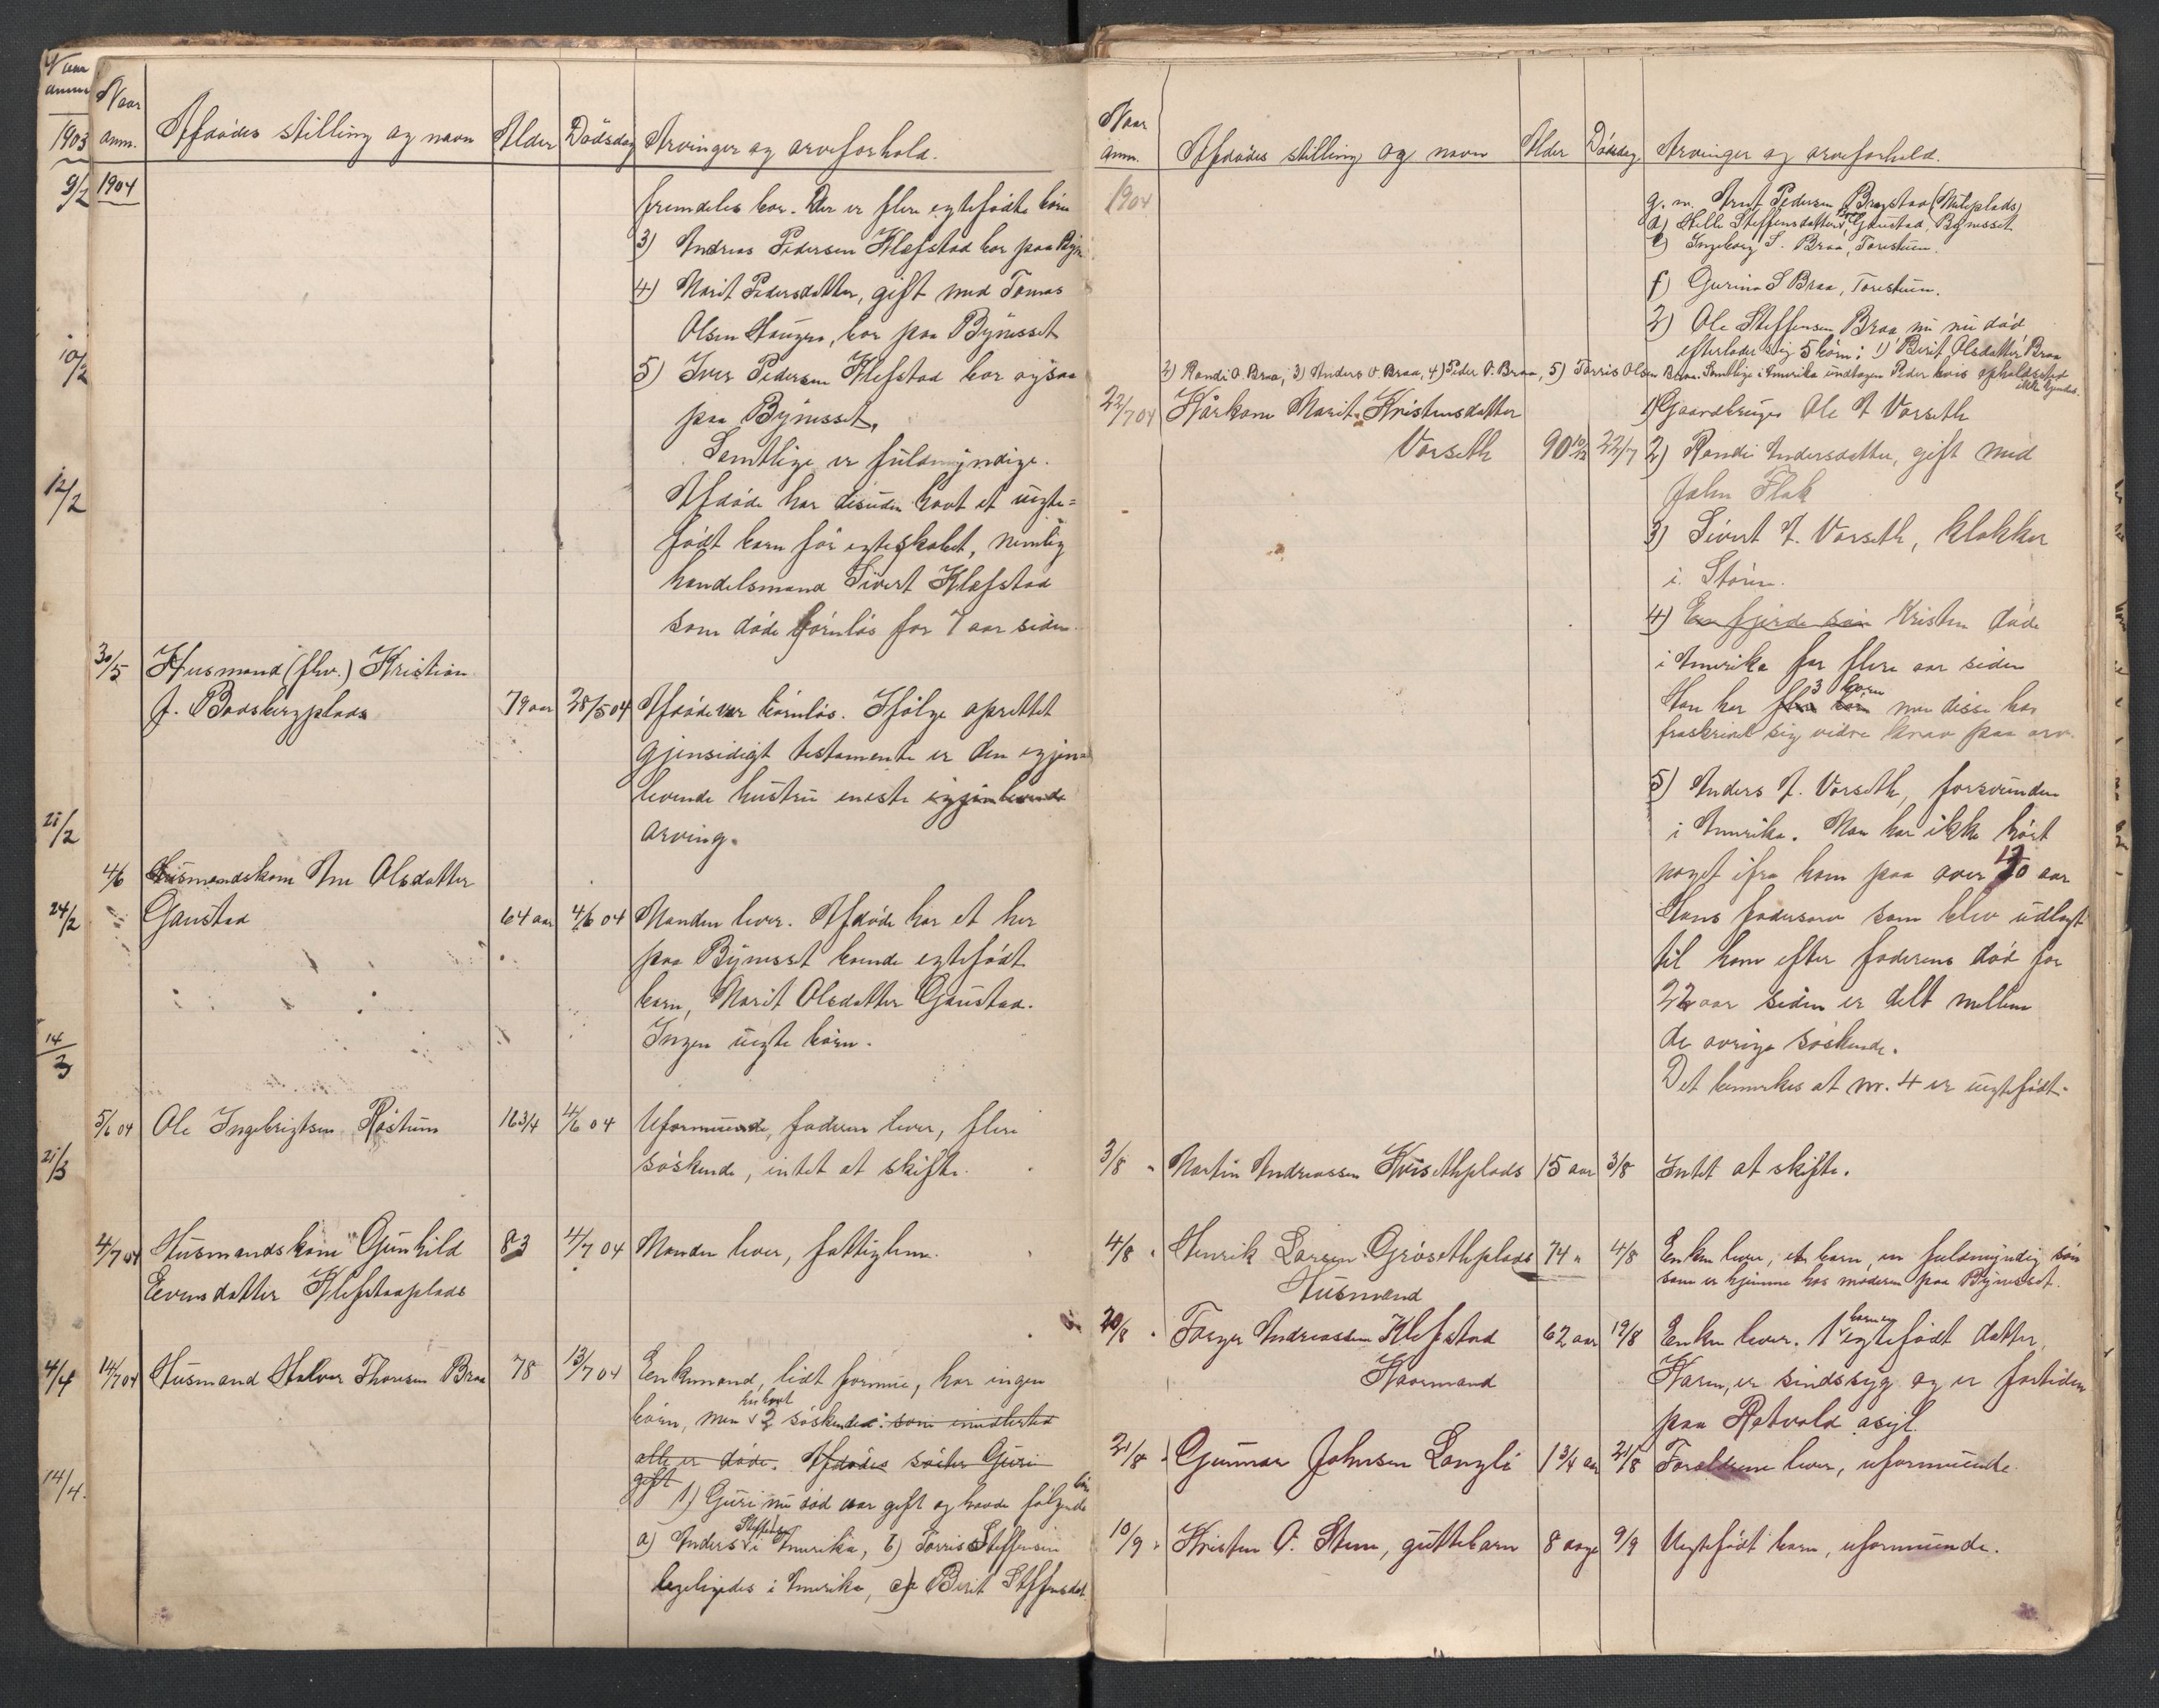 Naar
anm.
1903
9/2
10/2
12/2
21/2
24/2
14/3
21/3
4/4
14/4.
Naar anm. Afdødes stilling og navn Alder Dødsdag Arvinger og arveforhold.
1904
fremdeles bor. Der er flere egtefødte børn
3) Andreas Pedersen Klefstad bor paa Byn
4) Marit Pedersdatter, gift med Tomas
Olsen Haugen, bor paa Bynesset
5) Iver Pedersen Klefstad bor ogsaa
paa Bynesset.
Samtlige er fuldmyndige.
Afdøde har desuden havt et uegte-
født barn før egteskabet, nemlig
handelsmand Sivert Klefstad
som døde børnløs for 7 aar siden.
30/5 Husmand (fhv.) Kristian
J. Baasbergplads 79 aar 28/5 04 Afdøde var børnløs. Ifølge oprettet
gjensidigt testamente er den egjen-
levende hustru eneste egjenlevende
arving.
4/6 Husmandskone Ane Olsdatter
Gaustad 64 aar 4/6 04 Manden lever. Afdøde har et her
paa Bynesset boende egtefødt
barn, Marit Olsdatter Gaustad.
Ingen uegte børn.
5/6 04 Ole Ingebrigtsen Røstum 16 3/4 4/6 04 Uformuende, faderen lever, flere
søskende, intet at skifte.
4/7 04 Husmandskone Gunhild 83 4/7 04 Manden lever, fattiglem.
Evensdatter Klefstadplads
14/7 04 Husmand Halvor Thoresen Braa 78 13/7 04 Enkemand, lidt formue, har ingen
børn, men har havt 2 søskende: som imidlertid
alle er døde. Afdødes søster Guri
gift 1) Guri nu død var gift og havde følgende børn
a) Anders Steffensen i Amerika, b) Torris Steffensen
ligeledes i Amerika, c) Berit Steffensdat.
Naar anm. Afdødes stilling og navn Alder Dødsdag Arvinger og arveforhold.
1904
g. m. Arnt Pedersen Bragstad (Mule plads)
d) Hille Steffensdatter Gaustad, Bynesset
e) Ingeborg S. Braa, Torestuen.
f) Gurina S Braa, Torestuen.
2) Ole Steffensen Braa nu død
efterlader sig 5 børn: 1) Berit Olsdatter Braa
2) Randi O. Braa, 3) Anders O. Braa, 4) Peder O. Braa, 5) Torris Olsen Braa. Samtlige i Amerika undtagen Peder hvis opholdssted
ikke kjendes.
22/7 04 Kårkone Marit Kristensdatter 1) Gaardbruger Ole A Vorseth
Vorseth 90 10/12 22/7 2) Randi Andersdatter, gift med
John Flak
3) Sivert A. Vorseth, klokker
i Støren.
4) En fjerde søn Kristen døde
i Amerika for flere aar siden
Han har flere børn 3 børn men disse har
fraskrevet sig videre krav paa arv.
5) Anders A. Vorseth, forsvunden
i Amerika. Man har ikke hørt
noget ifra ham paa over 10 aar
Hans fadersarv som blev udlagt
til ham efter faderens død for
22 aar siden er delt mellem
de øvrige søskende.
Det bemerkes at nr. 4 er uegtefødt.
3/8 " Martin Andreassen Kvisethplads 15 aar 3/8 Intet at skifte.
4/8 " Henrik Larsen Grøsethplads 74 " 4/8 Enken lever, et barn, en fuldmyndig søn
Husmand som er hjemme hos moderen paa Bynesset.
20/8 " Torger Andreassen Klefstad 62 aar 19/8 Enken lever. 1 egtefødt datter,
Kaarmand Karen, er sindssyg og er fortiden
paa Rotvold asyl.
21/8 " Gunnar Johnsen Langli 1 3/4 aar 21/8 Forældrene lever, uformuende.
10/9 " Kristen O. Stene, guttebarn 8 dage 9/9 Uegtefødt barn, uformuende.